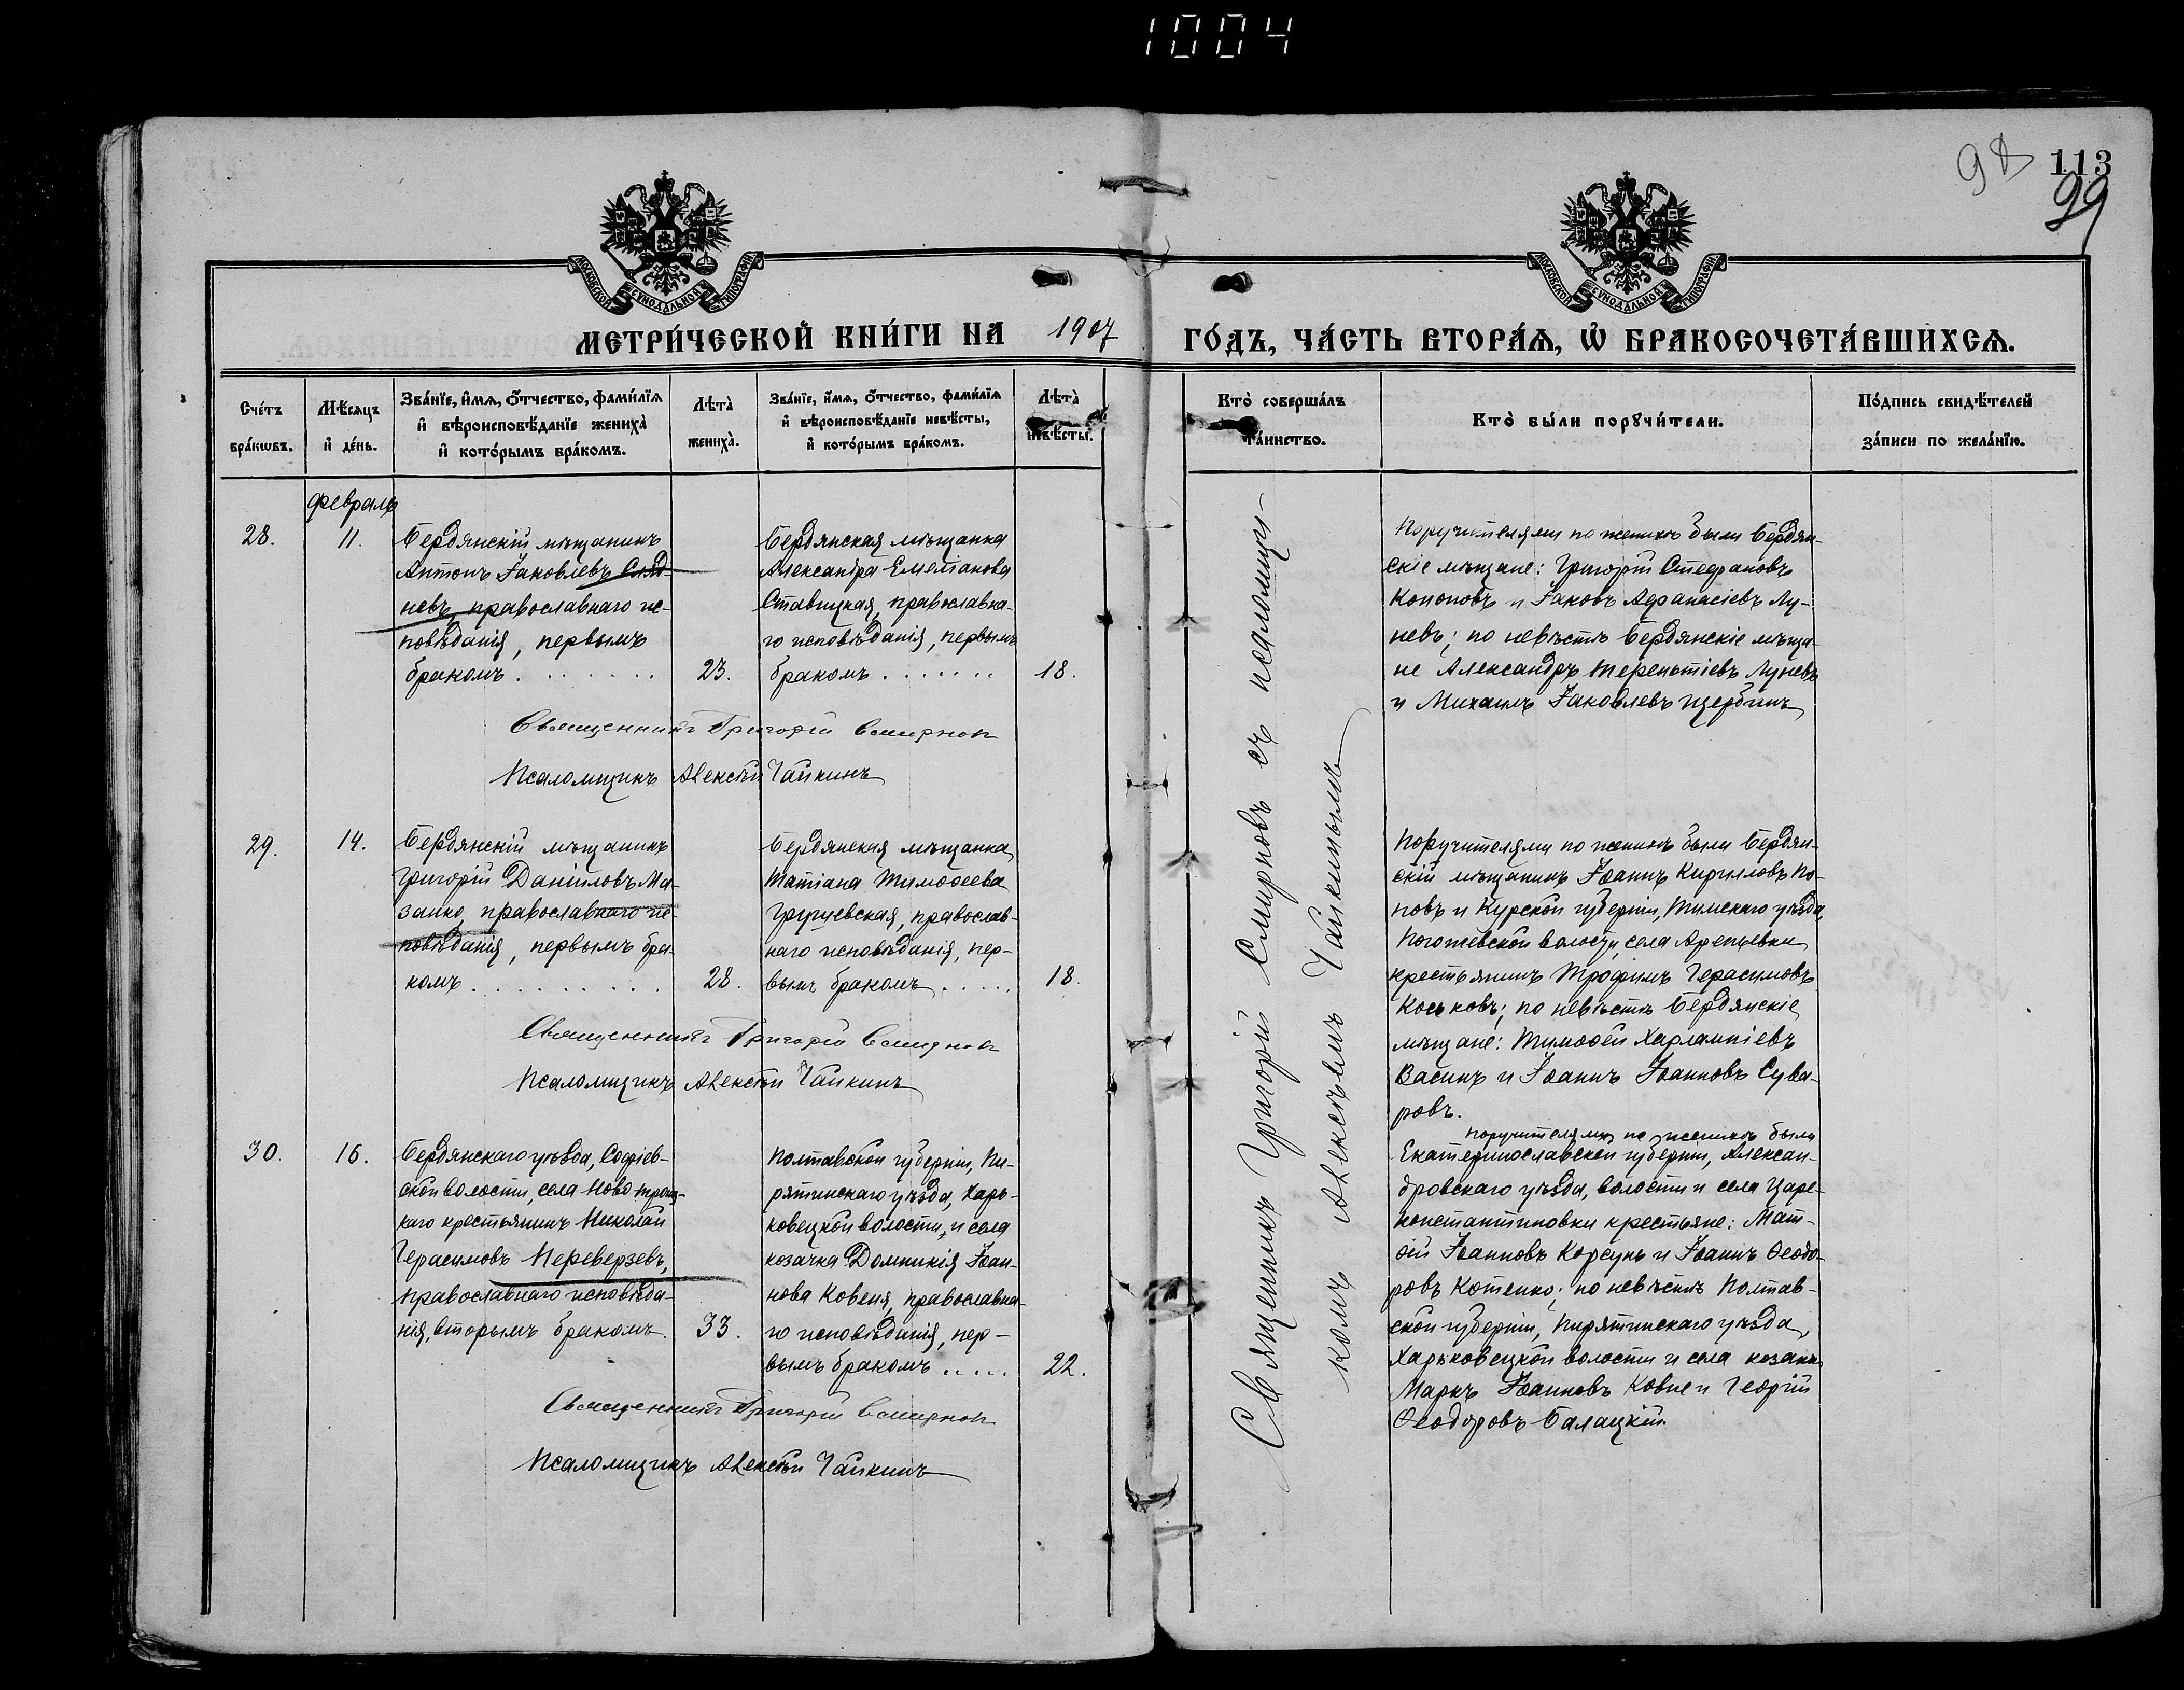 1004
98
113
99
МОСКОВСКОЙ СѴНОДАЛЬНОЙ ТИПОГРАФІИ
МОСКОВСКОЙ СѴНОДАЛЬНОЙ ТИПОГРАФІИ
МЕТРИ́ЧЕСКОЙ КНИ́ГИ НА 1907 ГО́ДЪ, ЧА́СТЬ ВТОРА́Ѧ, Ѡ҆ БРАКОСОЧЕТА́ВШИХСѦ.
Сче́тъ бра́кѡвъ.
Мѣ́сяцъ и҆ де́нь.
Зва́нїе, и҆́мѧ, ѻ҆́тчество, фами́лїѧ
и҆ вѣроисповѣ́данїе жениха̀
и҆ кото́рымъ бра́комъ.
Лѣ́та̀ жениха̀.
Зва́нїе, и҆́мѧ, ѻ҆́тчество, фами́лїѧ
и҆ вѣроисповѣ́данїе невѣ́сты,
и҆ кото́рымъ бра́комъ.
Лѣ́та̀ невѣ́сты.
Кто̀ соверша́лъ та́инство.
Кто̀ бы́ли порꙋчи́тели.
По́дпись свидѣ́телей
за́писи по жела́нїю.
февраль
28.
11.
Бердянскій мѣщанинъ
Антонъ Іаковлевъ
невъ православнаго ис-
повѣданія, первымъ
бракомъ . . . . . . .
23.
Бердянская мѣщанка
Александра Емеліанова
Ставицкая, православна-
го исповѣданія, первымъ
бракомъ . . . . . .
18.
Поручителями по женихѣ были Бердян-
скіе мѣщане: Григорій Стефановъ
Кононовъ и Іаковъ Афанасіевъ Лу-
невъ; по невѣстѣ Бердянскіе мѣща-
не Александръ Терентіевъ Луневъ
и Михаилъ Іаковлевъ Щербина
Священникъ Григорій Смирновъ
Псаломщикъ Алексѣй Чайкинъ
29.
14.
Бердянскій мѣщанинъ
Григорій Даніиловъ Ма-
занко, православнаго ис-
повѣданія, первымъ бра-
комъ . . . . . . . . .
28.
Бердянская мѣщанка
Татіана Тимоѳеева
Грушевская, православ-
наго исповѣданія, пер-
вымъ бракомъ . . . . .
18.
Поручителями по женихѣ были Бердян-
скій мѣщанинъ Іоаннъ Кирилловъ По-
повъ и Курской губерніи, Тимскаго уѣзда,
Погожевской волости, села
крестьянинъ Трофимъ Герасимовъ
Коськовъ; по невѣстѣ Бердянскіе
мѣщане: Тимоѳей Харлампіевъ
Васинъ и Іоаннъ Іоанновъ Сува-
ровъ.
Священникъ Григорій Смирновъ
Псаломщикъ Алексѣй Чайкинъ
30.
16.
Бердянскаго уѣзда, Софіев-
ской волости, села Ново Троиц-
каго крестьянинъ Николай
Герасимовъ Переверзевъ,
православнаго исповѣда-
нія, вторымъ бракомъ.
33.
Полтавской губерніи, Пи-
рятинскаго уѣзда, Харь-
ковецкой волости, и села
козачка Домникія Іоан-
нова Ковеня, православна-
го исповѣданія, пер-
вымъ бракомъ . . . . .
22.
поручителями по женихѣ были
Екатеринославской губерніи, Алексан-
дровскаго уѣзда, волости и села Царе-
константиновки крестьяне: Мат-
ѳій Іоанновъ Корсунь и Іоаннъ Ѳеодо-
ровъ Котенко; по невѣстѣ Полтав-
ской губерніи, Пирятинскаго уѣзда,
Харьковецкой волости и села козаки
Маркъ Іоанновъ и Георгій
Ѳеодоровъ Балацкій.
Священникъ Григорій Смирновъ
Псаломщикъ Алексѣй Чайкинъ
Священникъ Григорій Смирновъ съ псаломщи-
комъ Алексѣемъ Чайкинымъ